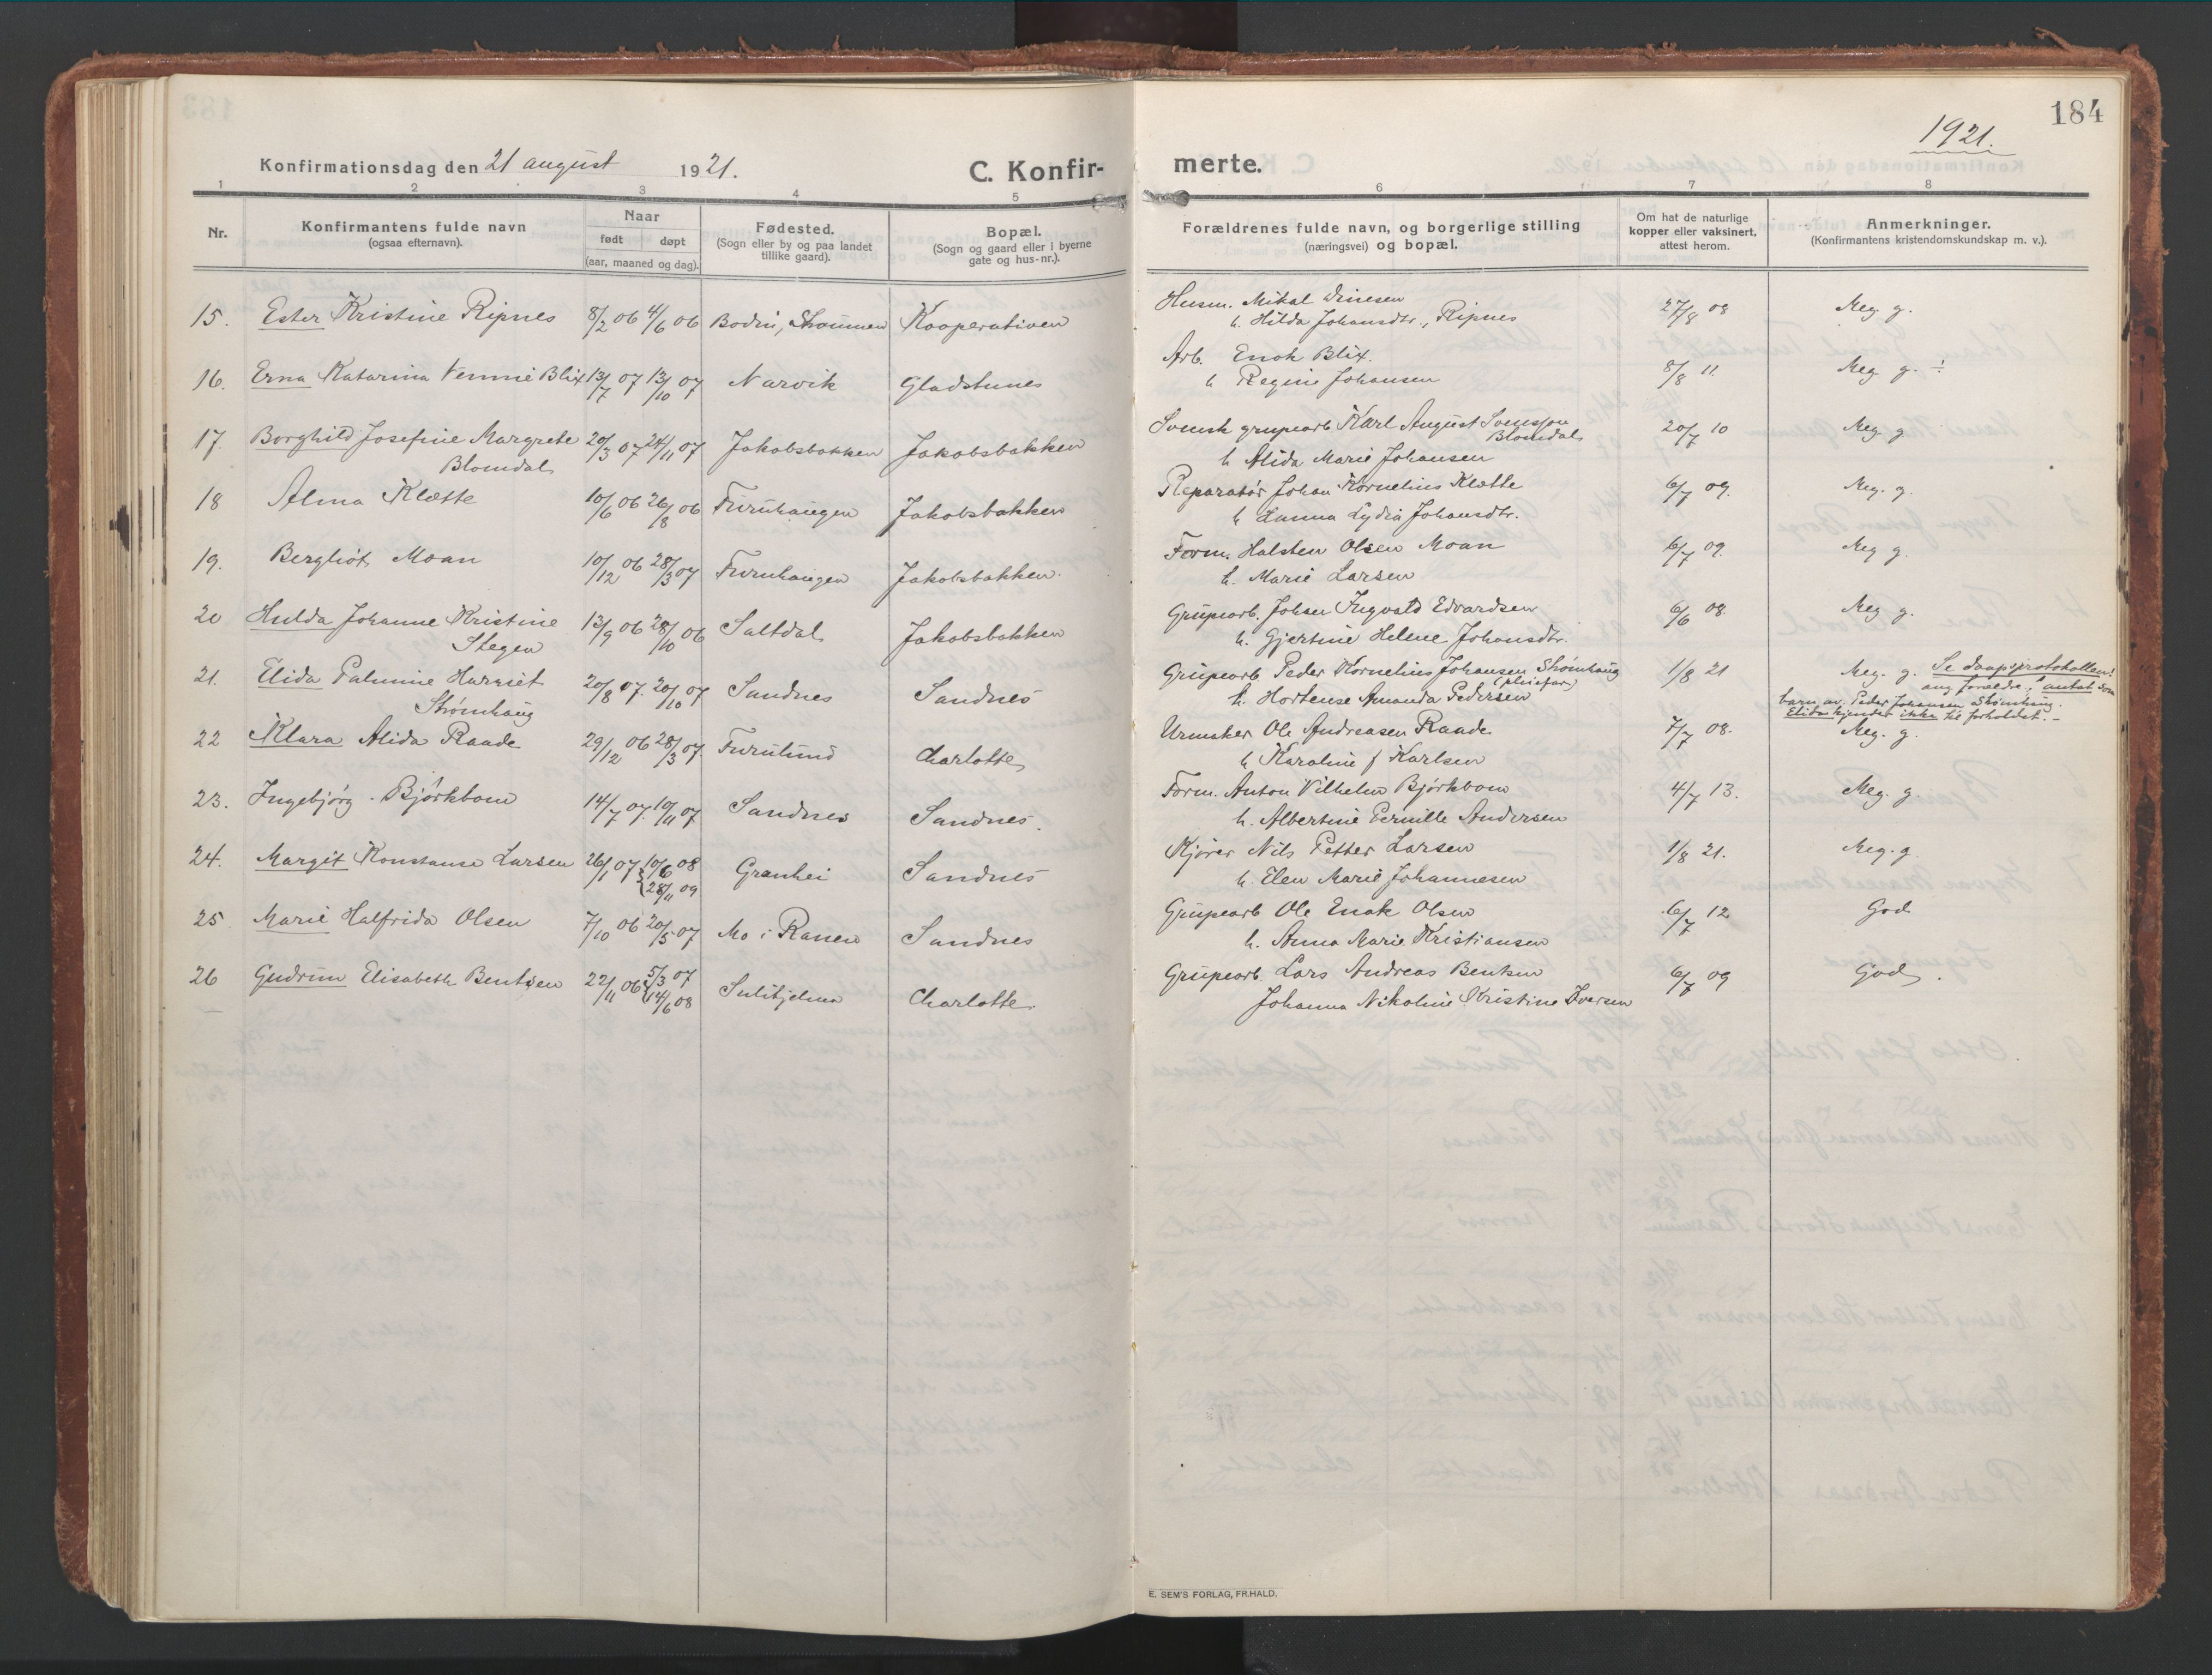 184
1921.
Konfirmationsdag den 21 august 1921.
C. Konfir-
merte.
1 2 3 4 5 6 7 8
Nr.
Konfirmantens fulde navn
(ogsaa efternavn).
Naar
født døpt
(aar, maaned og dag).
Fødested.
(Sogn eller by og paa landet
tillike gaard).
Bopæl.
(Sogn og gaard eller i byerne
gate og hus-nr.).
Forældrenes fulde navn, og borgerlige stilling
(næringsvei) og bopæl.
Om hat de naturlige
kopper eller vaksinert,
attest herom.
Anmerkninger.
(Konfirmantens kristendomskundskap m. v.).
15. Ester Kristine Ripnes 8/2 06 4/6 06 Bodin, Strømmen Kooperativen
Husm. Mikal
h. Hilda Johansdtr., Ripnes
27/8 08 Meg. g.
16. Erna Katarina Blix 13/7 07 13/10 07 Narvik Gladstunes
Arb. Enok Blix.
h Regine Johansen
8/8 11. Meg g. ÷
17. Borghild Josefine Margrete 20/3 07 24/11 07 Jakobsbakken Jakobsbakken
Blomdal
Svensk grupearb Karl August Svensson
Blomdal
h Alida Marie Johansen
20/7 10 Meg g
18 Alma Klætte 10/6 06 26/8 06 Furuhaugen Jakobsbakken
Reparatør Johan Kornelius Klætte
h Lydia Johansdtr.
6/7 09. Meg. g.
19. Bergliot Moan 10/12 06 28/3 07 Furuhaugen Jakobsbakken.
Form. Halsten Olsen Moan
h. Marie Larsen
6/7 09. Meg g.
20 Hulda Johanne Kristine 13/9 06 28/10 06 Saltdal Jakobsbakken
Stegen
Grupearb. Johan Ingvald Edvardsen
h. Gjertine Helene Johansdtr.
6/6 08. Meg g.
21. Elida Palmine Harriet 20/8 07. 20/10 07 Sandnes Sandnes
Strømhaug
Grupearb Peder Kornelius Johansen Strømhaug
(pleiefar)
h. Hortense Amanda Pedersen
1/8 21 Meg. g. Se daapsprotokollen!
ang forældre! antat som
barn av Peder Johansen Strømhaug.
Elida kjender ikke til forholdet. –
22 Klara Alida Raade 29/12 06 28/3 07. Furulund Charlotte
Urmaker Ole Andreasen Raade
h Karoline f Karlsen
7/7 08. Meg. g.
23. Ingebjørg Bjørkbom 14/7 07. 10/11 07 Sandnes Sandnes.
Form. Anton Vilhelm Bjørkbom
h. Albertine Pernille Andersen
4/7 13. Meg. g.
24. Margit Konstanse Larsen 26/1 07 10/6 08 Granhei Sandnes
28/11 09
Kjører Nils Petter Larsen
h. Elen Marie Johannesen
1/8 21. Meg. g
25. Marie Halfrida Olsen 7/10 06 20/5 07 Mo i Ranen Sandnes
Grupearb Ole Enok Olsen
h. Anna Marie Kristiansen
6/7 12 God
26 Gudrun Elisabeth Bentsen 22/11 06 5/3 07 Sulitjelma Charlotte.
14/6 08
Grupearb. Lars Andreas Bentsen
Johanna Nikoline Kristine Iversen
6/7 09 God.
E. SEM'S FORLAG, FR.HALD.